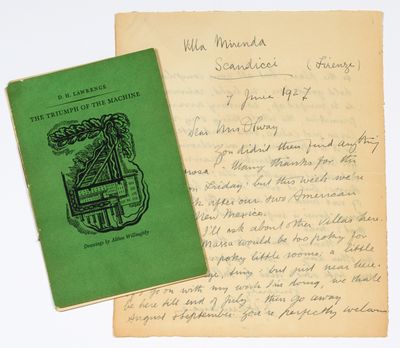 D. H. LAWRENCE
THE TRIUMPH OF THE MACHINE
Drawings by Althea Willoughby
Villa Mirenda
Scandicci (Firenze)
7 June 1927
Dear Mrs Otway
You didn't then find anything
Many thanks for the
on Friday: but this week we're
after our two American
New Mexico.
I'll ask about other villas here.
Maria would be too poky for
poky little rooms: a little
but just near here.
on with my work I'm doing, we shall
be here till end of July then go away
August & September. You're perfectly welcome